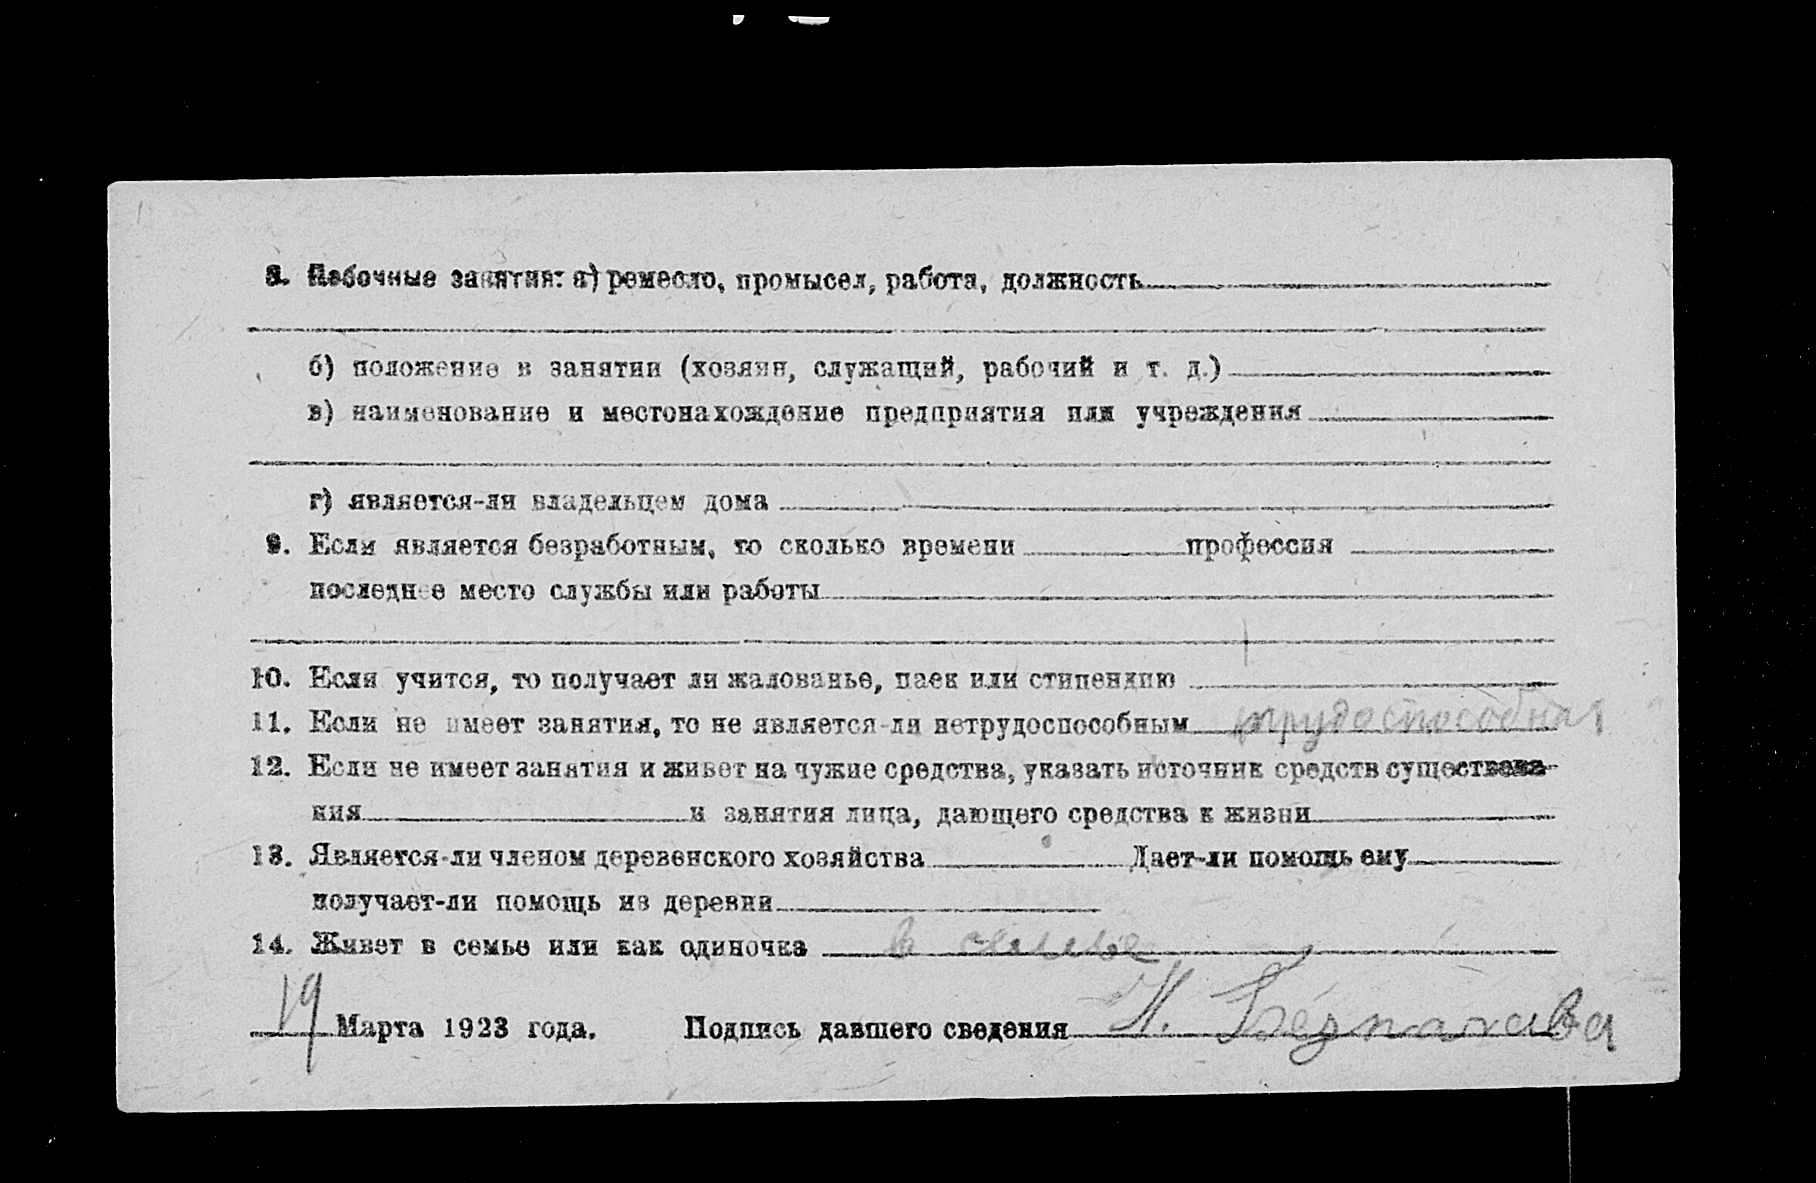 8. Побочные занятия: а) ремесло, промысел, работа, должность
б) положение в занятии (хозяин, служащий, рабочий и т. д.)
в) наименование и местонахождение предприятия или учреждения
г) является-ли владельцем дома
9. Если является безработным, то сколько времени профессия
последнее место службы или работы
10. Если учится, то получает ли жалованье, паек или стипендию
11. Если не имеет занятия, то не является-ли нетрудоспособным трудоспособная
12. Если не имеет занятия и живет на чужие средства, указать источник средств существова-
ния и занятия лица, дающего средства к жизни
13. Является-ли членом деревенского хозяйства Дает-ли помощь ему
получает-ли помощь из деревни
14. Живет в семье или как одиночка в семье
19 Марта 1923 года. Подпись давшего сведения Н.